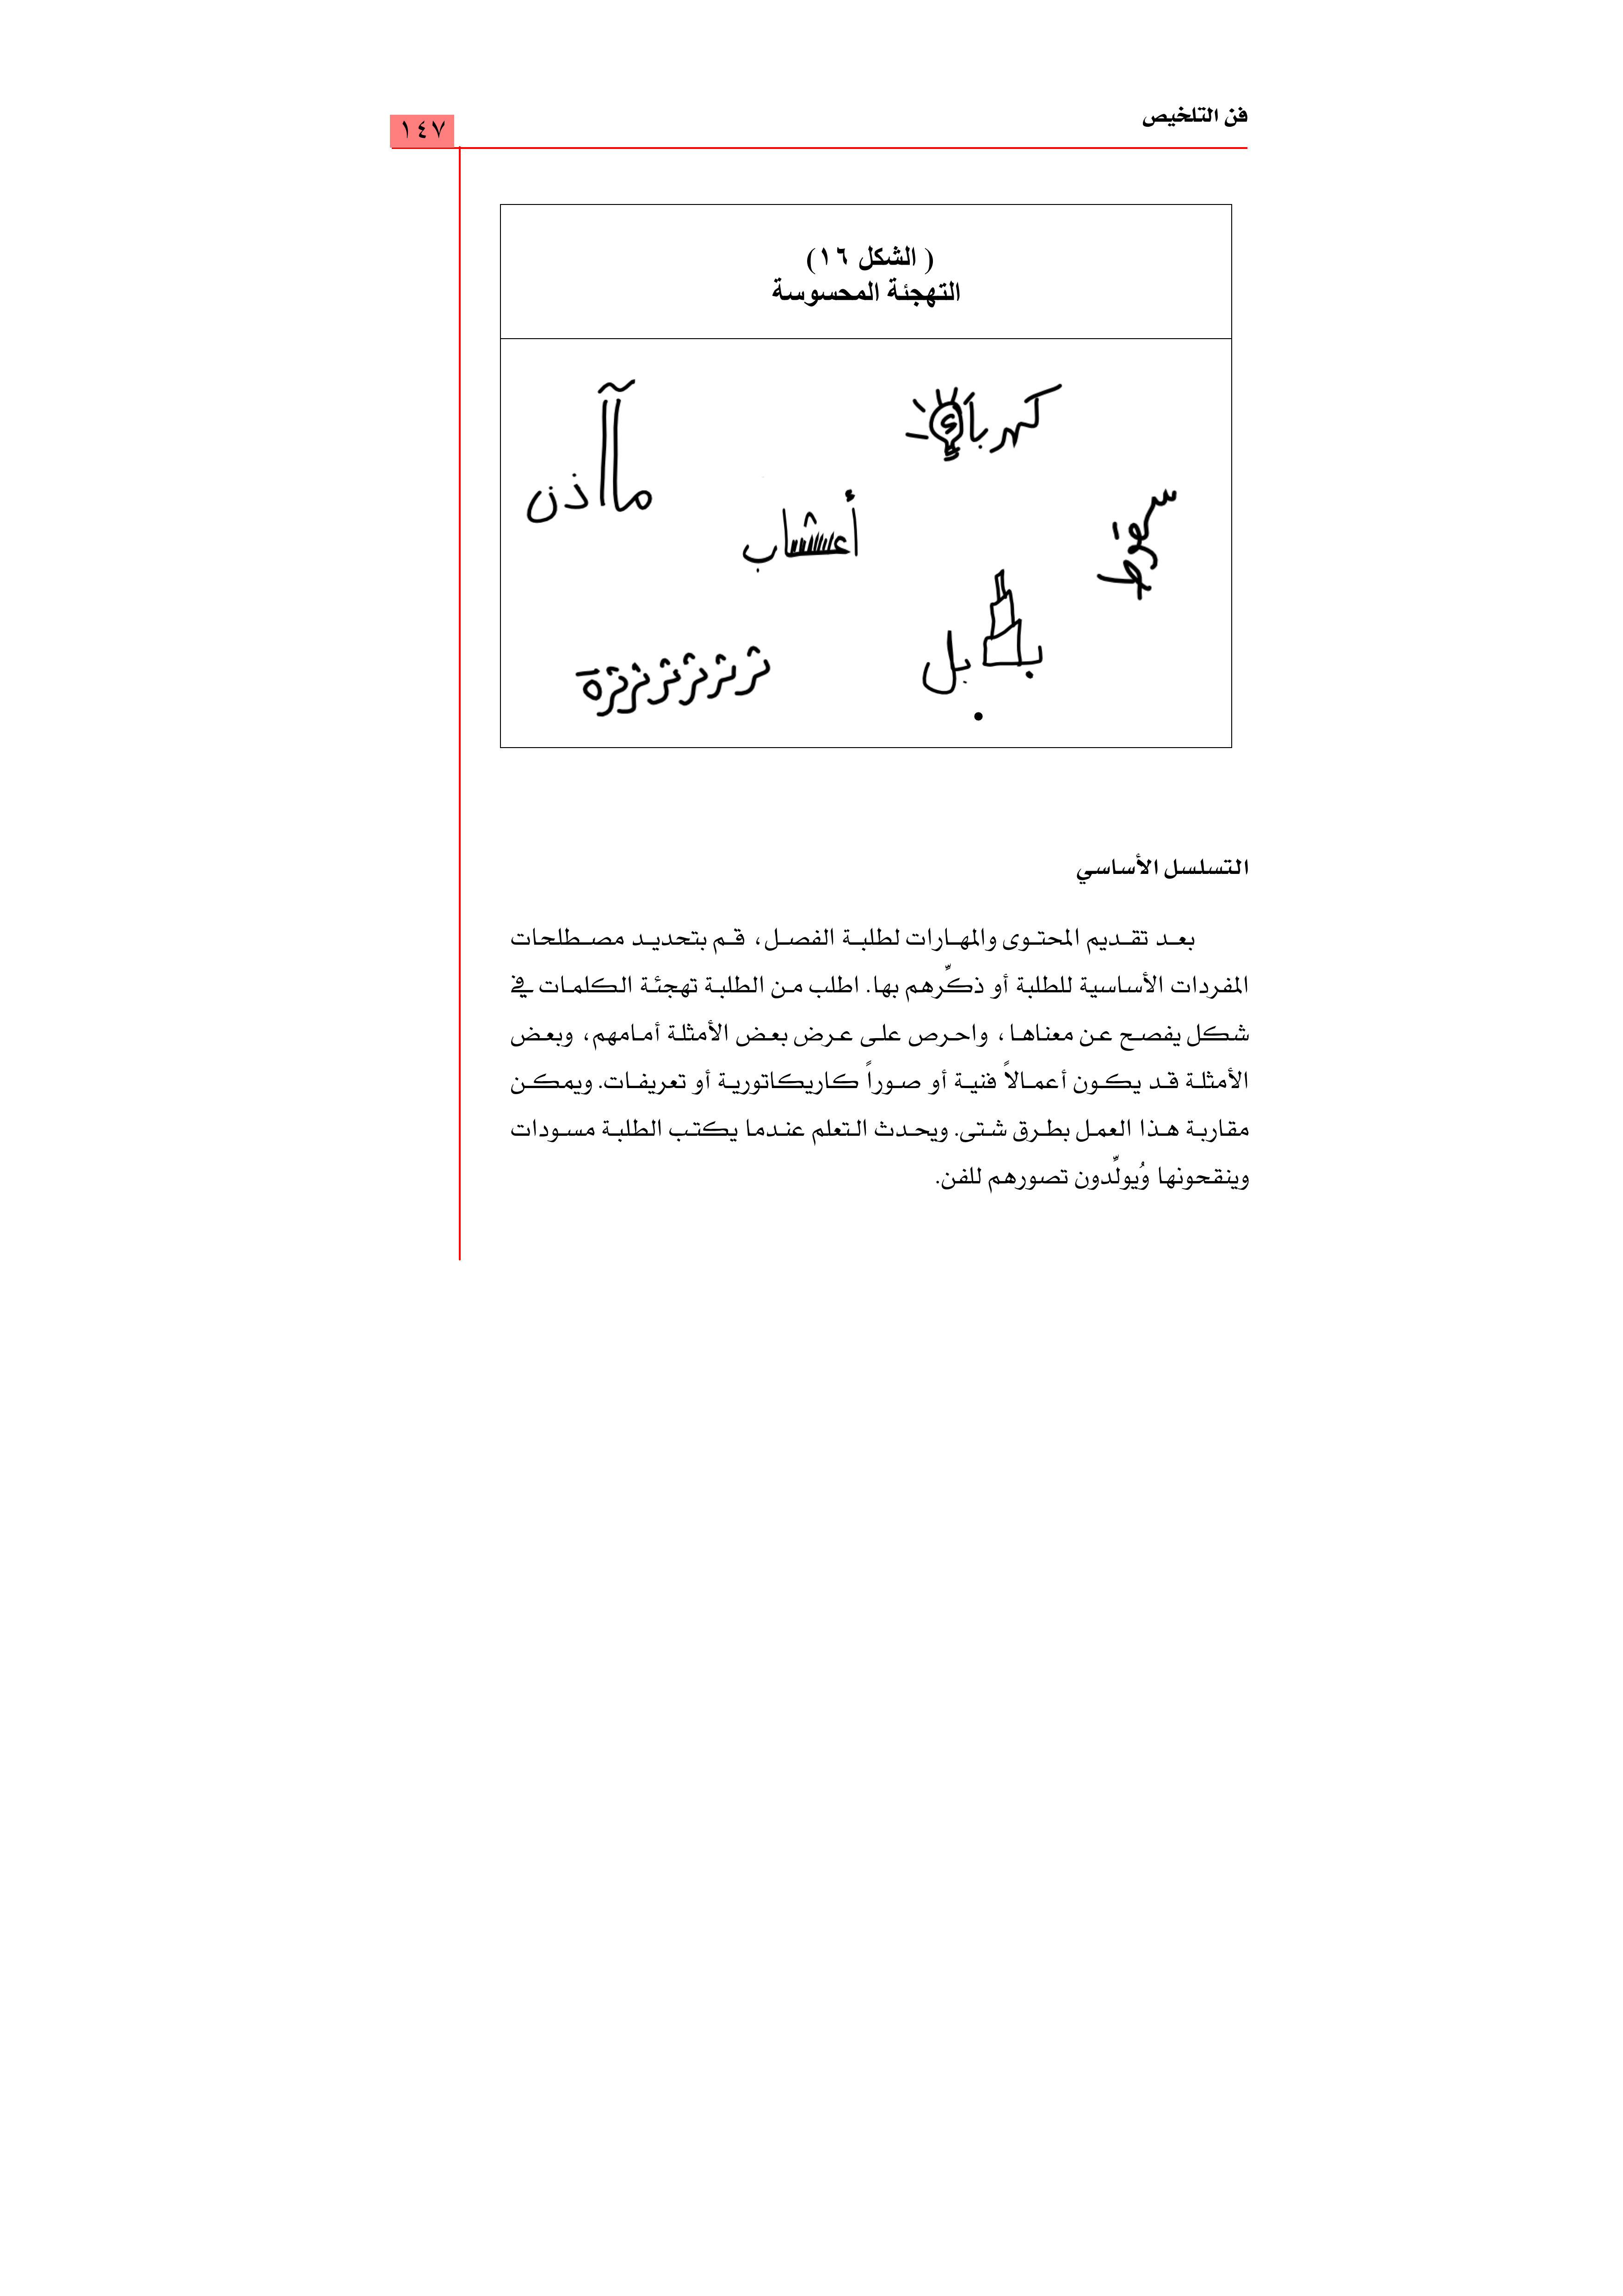 فن التلخيص
١٤٧
( الشكل ١٦)
التهجئة المحسوسة
كهرباء
مآذن
سقوط
أعشاب
بابل
ثرثرثرثرة
التسلسل الأساسي
بعد تقديم المحتوى والمهارات لطلبة الفصل، قم بتحديد مصطلحات
المفردات الأساسية للطلبة أو ذكِّرهم بها. اطلب من الطلبة تهجئة الكلمات في
شكل يفصح عن معناها، واحرص على عرض بعض الأمثلة أمامهم، وبعض
الأمثلة قد يكون أعمالاً فنية أو صوراً كاريكاتورية أو تعريفات. ويمكن
مقاربة هذا العمل بطرق شتى. ويحدث التعلم عندما يكتب الطلبة مسودات
وينقحونها وُيولِّدون تصورهم للفن.